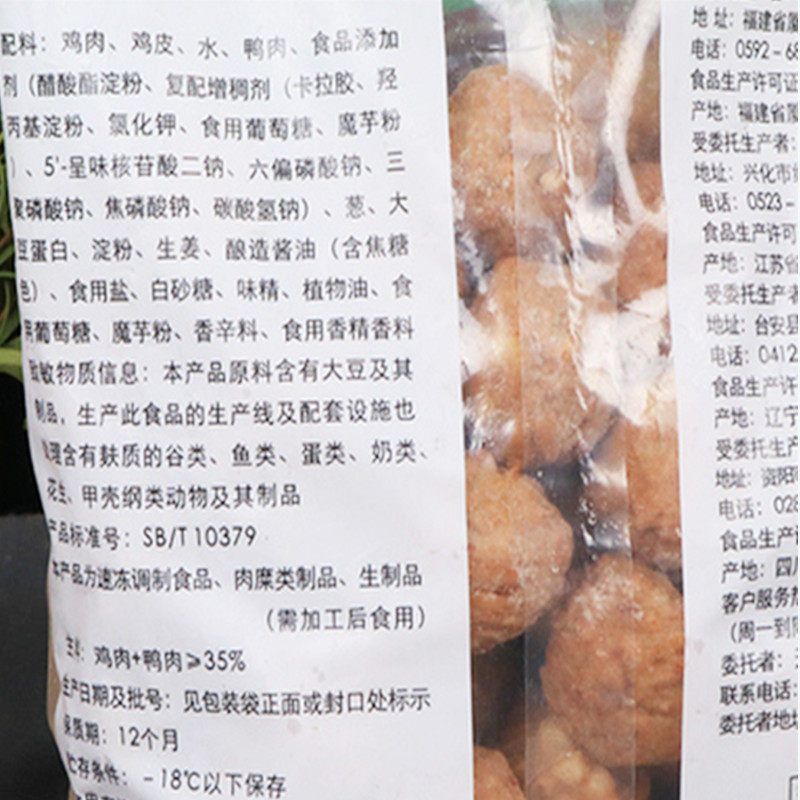 配料：鸡肉、鸡皮、水、鸭肉、食品添加
剂（醋酸酯淀粉、复配增稠剂（卡拉胶、羟
丙基淀粉、氯化钾、食用葡萄糖、魔芋粉
）、5'-呈味核苷酸二钠、六偏磷酸钠、三
聚磷酸钠、焦磷酸钠、碳酸氢钠）、葱、大
豆蛋白、淀粉、生姜、酿造酱油（含焦糖
色）、食用盐、白砂糖、味精、植物油、食
用葡萄糖、魔芋粉、香辛料、食用香精香料
致敏物质信息：本产品原料含有大豆及其
制品，生产此食品的生产线及配套设施也
处理含有麸质的谷类、鱼类、蛋类、奶类、
花生、甲壳纲类动物及其制品
产品标准号：SB/T 10379
本产品为速冻调制食品、肉糜类制品、生制品
（需加工后食用）
鸡肉+鸭肉≥35%
生产日期及批号：见包装袋正面或封口处标示
保质期：12个月
贮存条件：-18℃以下保存
地址：福建省厦
电话：0592-68
食品生产许可证
产地：福建省厦
受委托生产者：
地址：兴化市
电话：0523-
食品生产许可
产地：江苏省
受委托生产者
地址：台安县
电话：0412
食品生产许
产地：辽宁
受委托生产
地址：资阳
电话：028
食品生产
产地：四川
客户服务热
（周一到周
委托者：
联系电话：
委托者地